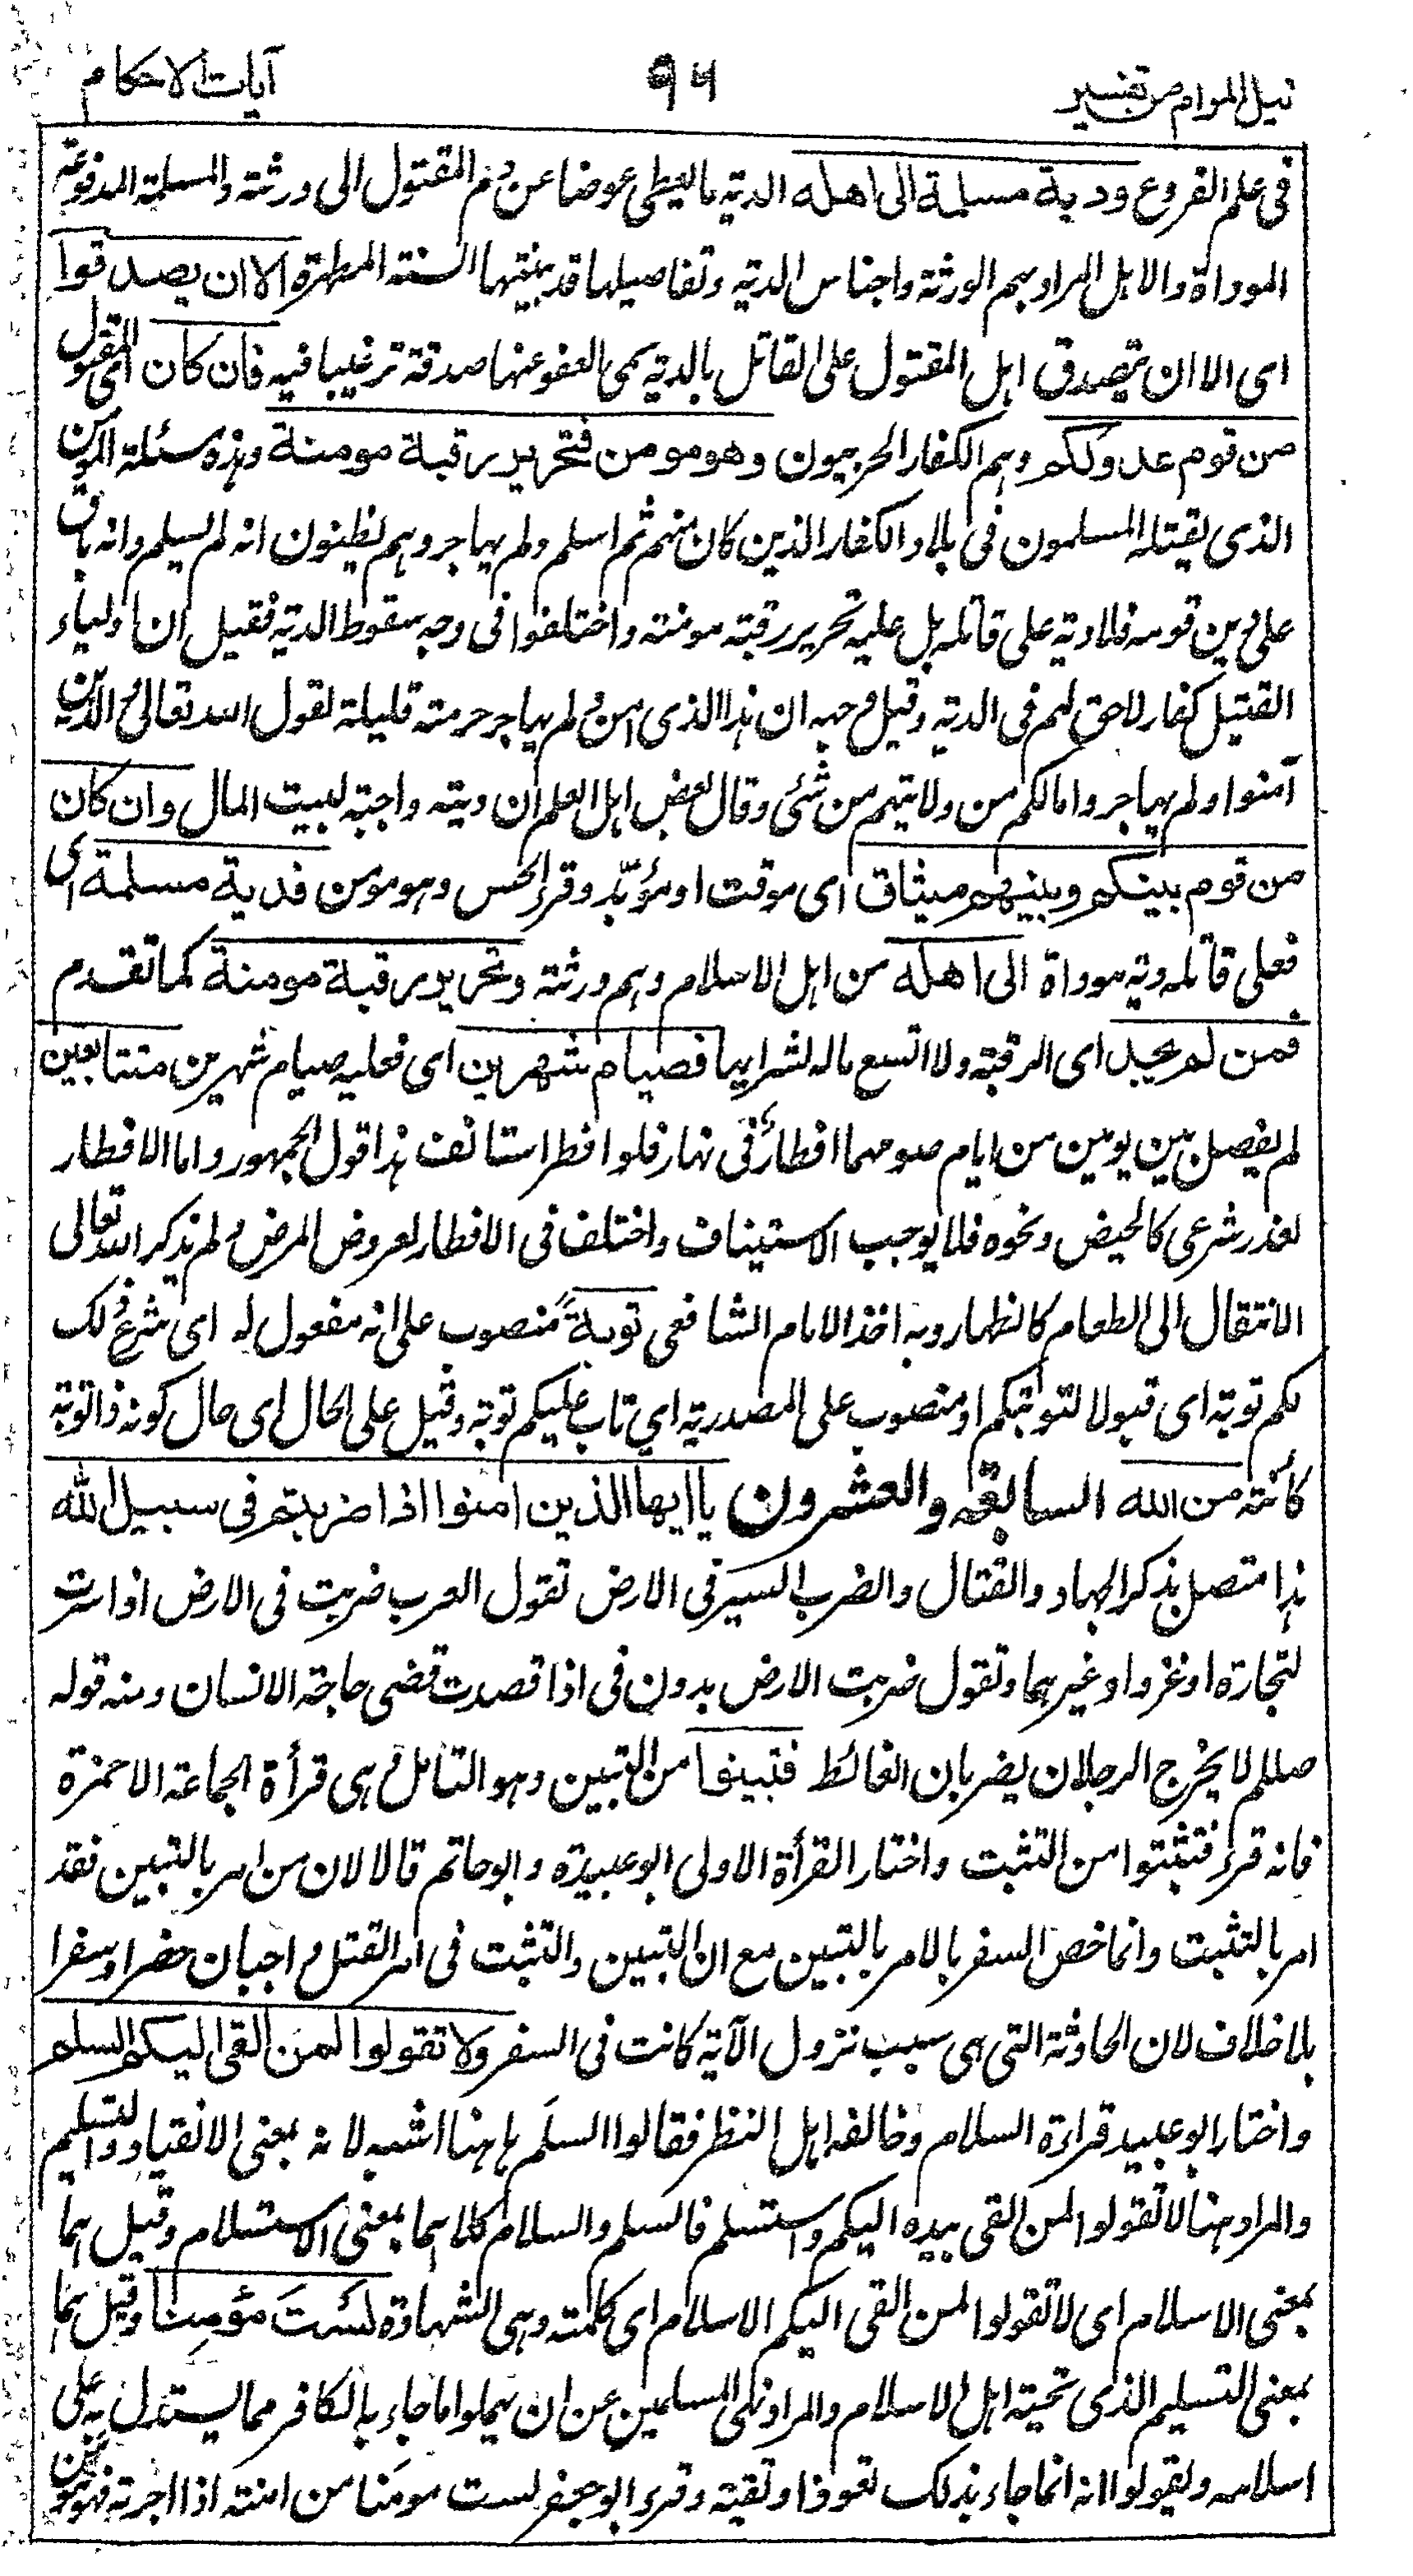 نيل المرام من تفسير ٩٦ آيات الاحكام
فى علم الفروع ودية مسلمة الى اهله الدية ما يعطى عوضا عن دم المقتول الى ورثته والمسلمة المدفوعة
الموداة والاهل المراد بهم الورثة واجناس الدية وتفاصيلها قد بينتها السنة المطهرة الا ان يصدقوا
اى الا ان يتصدق اهل المقتول على القاتل بالدية سمى العفو عنها صدقة ترغيبا فيه فان كان اى المقتول
من قوم عدو لكم وهم الكفار الحربيون وهو مومن فتحرير رقبة مومنة وهذه مسئلة المومن
الذى يقتله المسلمون فى بلاد الكفار الذين كان منهم ثم اسلم ولم يهاجر وهم يظنون انه لم يسلم وانه باق
على دين قومه فلا دية على قاتله بل عليه تحرير رقبة مومنة واختلفوا فى وجه سقوط الدية فقيل ان اولياء
القتيل كفار لا حق لهم فى الدية وقيل وجهه ان هذا الذى امن ولم يهاجر حرمته قليلة لقول الله تعالى والذين
آمنوا ولم يهاجروا مالكم من ولايتهم من شئ وقال بعض اهل العلم ان ديته واجبة لبيت المال وان كان
من قوم بينكم وبينهم ميثاق اى موقت او مؤبد وقرء الحسن وهو مؤمن فدية مسلمة اى
فعلى قاتله دية موداة الى اهله من اهل الاسلام وهم ورثته وتحرير رقبة مومنة كما تقدم
فمن لم يجد اى الرقبة ولا اتسع ماله لشرايها فصيام شهرين اى فعليه صيام شهرين متتابعين
لم يفصل بين يومين من ايام صومهما افطار فى نهار فلو افطر استانف هذا قول الجمهور واما الافطار
لعذر شرعى كالحيض ونحوه فلا يوجب الاستيناف واختلف فى الافطار لعروض المرض ولم يذكر الله تعالى
الانتقال الى الطعام كالظهار وبه اخذ الامام الشافعى توبةً منصوب على انه مفعول له اى شرع ذلك
لكم توبة اى قبولا لتوبتكم او منصوب على المصدرية اي تاب عليكم توبة وقيل على الحال اى حال كونه ذا توبة
كائنة من الله السابعة والعشرون يا ايها الذين امنوا اذا ضربتم فى سبيل الله
هذا متصل بذكر الجهاد والقتال والضرب السير فى الارض تقول العرب ضربت فى الارض اذا سرت
لتجارة او غزو او غيرهما وتقول ضربت الارض بدون فى اذا قصدت قضى حاجة الانسان ومنه قوله
صللم لا يخرج الرجلان يضربان الغائط فتبينوا من التبين وهو التامل وهى قرأة الجماعة الا حمزة
فانه قرء فتثبتوا من التثبت واختار القرأة الاولى ابو عبيدة وابو حاتم قالا لان من امر بالتبين فقد
امر بالتثبت وانما خص السفر بالامر بالتبين مع ان التبين والتثبت فى امر القتل واجبان حضرا وسفرا
بلا خلاف لان الحادثة التى هى سبب نزول الآية كانت فى السفر ولا تقولوا لمن القى اليكم السلم
واختار ابو عبيد قراءة السلام وخالفه اهل النظر فقالوا السلَم ها هنا اشبه لانه بمعنى الانقياد والتسليم
والمراد هنا لا تقولوا لمن القى بيده اليكم واستسلم فالسلم والسلام كلاهما بمعنى الاستسلام وقيل هما
بمعنى الاسلام اى لا تقولوا لمن القى اليكم الاسلام اى كلمته وهى الشهادة لستَ مؤمِنا وقيل هما
بمعنى التسليم الذى تحية اهل الاسلام والمراد نهى المسلمين عن ان يهملوا ما جاء به الكافر مما يستدل به على
اسلامه ويقولوا انه انما جاء بذلك تعوذا وتقية وقرء ابو جعفر لست مومَنا من امنته اذا اجرته فهو مومَن